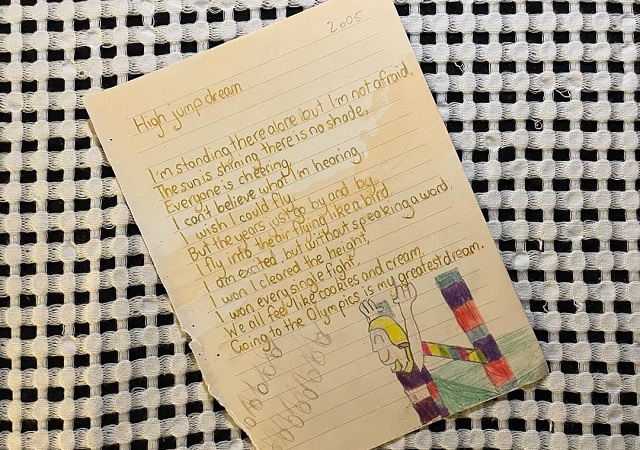 2005
High jump dream
I'm standing there alone but I'm not afraid,
The sun is shining there is no shade,
Everyone is cheering,
I can't believe what I'm hearing.
I wish I could fly,
But the years just go by and by,
I fly into the air flying like a bird
I am excited but without speaking a word.
I won I cleared the height,
I won every single fight
We all feel like cookies and cream
Going to the Olympics is my greatest dream.